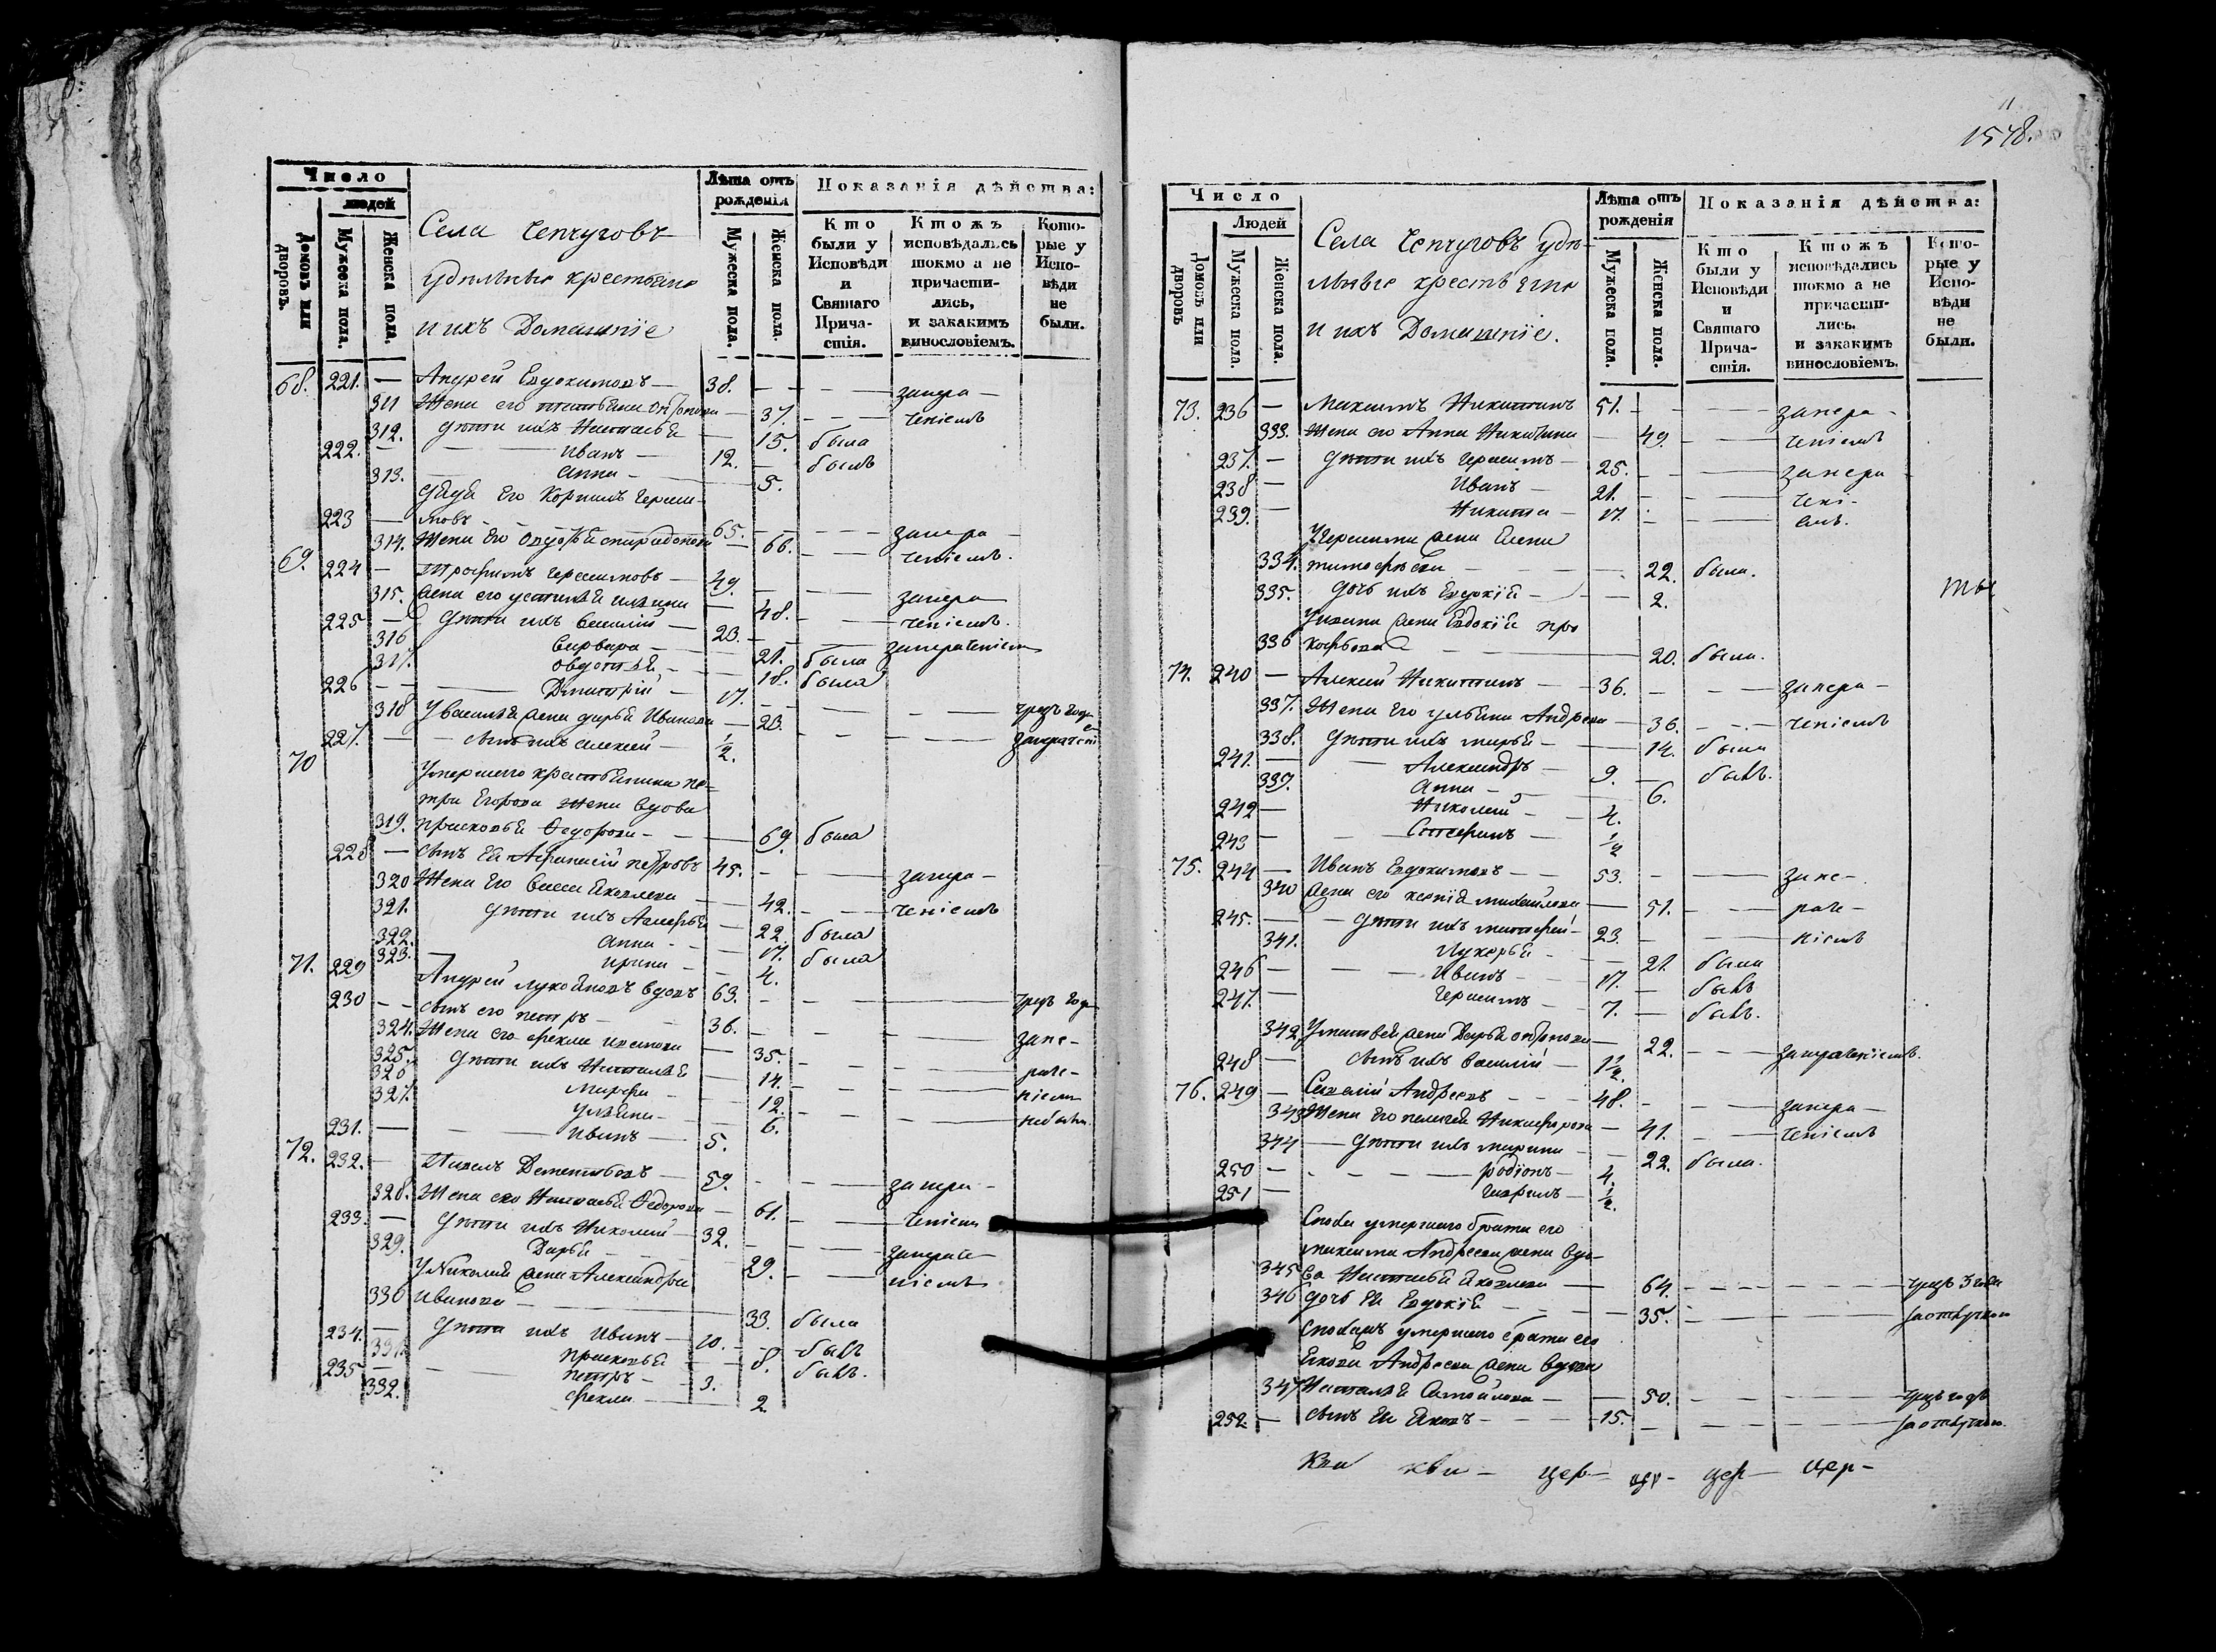 Число
людей
Домовъ или дворовъ.
Мужеска пола.
Женска пола.
Села Чепчуговъ
удѣльныя крестьяне
и ихъ Домашніе
Лѣта отъ рожденія
Мужеска пола.
Женска пола.
Показанія дѣйства:
Кто были у Исповѣди и Святаго Причастія.
Ктожъ исповѣдались токмо а не причастились, и закакимъ винословіемъ.
Которые у Исповѣди не были.
68. 221. — Андрей Евдокимовъ — 38. — — — запера-
311 Жена его — 37. — — ченіемъ
312. дѣти ихъ Наталья — 15. была
222. — Иванъ — 12. — былъ
313. — Анна — 5.
дядя его Корнилъ Гераси-
223 — мовъ 65. — — запера-
314. Жена его Авдотья Спиридонова — 66. — — ченіемъ.
69. 224 — Трофимъ Герасимовъ — 49. — — запера
315. жена его Устинья — 48. — — ченіемъ.
225 — дѣти ихъ Василій — 23. — — запераченіемъ
316 Варвара — 21. была
317. Овдотья — 18. была
226 — — Дмитрій — 17.
318 У Василья жена Дарья Иванова — 23. — — — чрезъ годъ
227. — — сынъ ихъ Алексей — 1/2.
70 Умершаго крестьянина Пе-
тра Егорова жена вдова
319. Прасковья Федорова — — 69. была
228 — сынъ ея Афанасій Петровъ 45. — — запера-
320 Жена его Васса Яковлева — 42. — — ченіемъ
321. дѣти ихъ — 22. была
322. Анна — 17. была
323. Ирина — 4.
71. 229 Андрей вдовъ 63. — — — чрезъ годъ
230 — — сынъ его Петръ — 36. — — — запе-
324. Жена его Фекла — 35. — — — раче-
325. дѣти ихъ Наталья — 14. — — ніемъ
326 Марфа — 12. — —
327. Ульяна — 6.
231. — — Иванъ — 5.
72. 232. — Дементьевъ — 59. — — запера-
328. Жена его Наталья Федорова — 61. — — ченіемъ
233. — дѣти ихъ Николай — 32. — — запераче-
329. Дарья — 29. — — ніемъ
У Николая жена Александра
330 Иванова — — 33. была
234. — дѣти ихъ Иванъ — 10. — былъ
331. Прасковья — 8.
235 — — Петръ — 3.
332. Фекла — 2
1548.
Число
Людей
Домовъ или дворовъ
Мужеска пола.
Женска пола.
Села Чепчуговъ удѣ-
льныя крестьяне
и ихъ Домашніе.
Лѣта отъ рожденія
Мужеска пола.
Женска пола.
Показанія дѣйства:
Кто были у Исповѣди и Святаго Причастія.
Ктожъ исповѣдались токмо а не причастились. и закакимъ винословіемъ.
Которые у Исповѣди не были.
73. 236 — Максимъ Никитинъ 51. — — запера-
333. Жена его Анна Никитина — 49. — — ченіемъ
237. — дѣти ихъ Герасимъ — 25. — — запера-
238 — Иванъ — 21. — — чені-
239. — Никита — 17. — — емъ.
У Герасима жена Елена
334. Тимофѣева — — 22. была.
335. дочь ихъ Евдокія — — 2.
У Ивана жена Евдокія Про
336 кофьева — 20. была.
74. 240 — Алексей Никитинъ — 36. — — запера-
337. Жена его Ульяна Андреева — 36. — — ченіемъ
338. дѣти ихъ Марья — 14. была
241. — — Александръ — 9. — былъ.
339. Анна — 6.
242 — Николай — 4.
243 — — — 1/2
75. 244 — Иванъ Евдокимовъ — 53. — — запе-
340 жена его Ксенія Михайлова — 51. — — раче-
245. — — дѣти ихъ — 23. — — ніемъ
341. Лукерья — 21. была
246 — — — Иванъ — 17. — былъ
247. — Герасимъ — 7. — былъ.
342 У жена Дарья — 22. — — запераченіемъ.
248 — сынъ ихъ Василій — 1 1/2.
76. 249 — Савелій Андреевъ — — 48. — — запера-
343 Жена его Пелагея Никифорова — 41. — — ченіемъ
344 — дѣти ихъ Марина — 22. была.
250 — — Родіонъ — 4.
251 — Гаврилъ — 1/2.
Снова умершаго брата его
Максима Андреева жена вдо-
345 ва Наталья Яковлева — 64. — — — чрезъ 3 года
346 дочь ея Евдокія — — 35. — — — заотлучкою
умершаго брата его
Якова Андреева жена вдова
347 Наталья Самойлова — — 50. — — — чрезъ годъ
252. — сынъ ея Яковъ — — 15. — — — заотлучкою.
цер- цер- цер- цер-